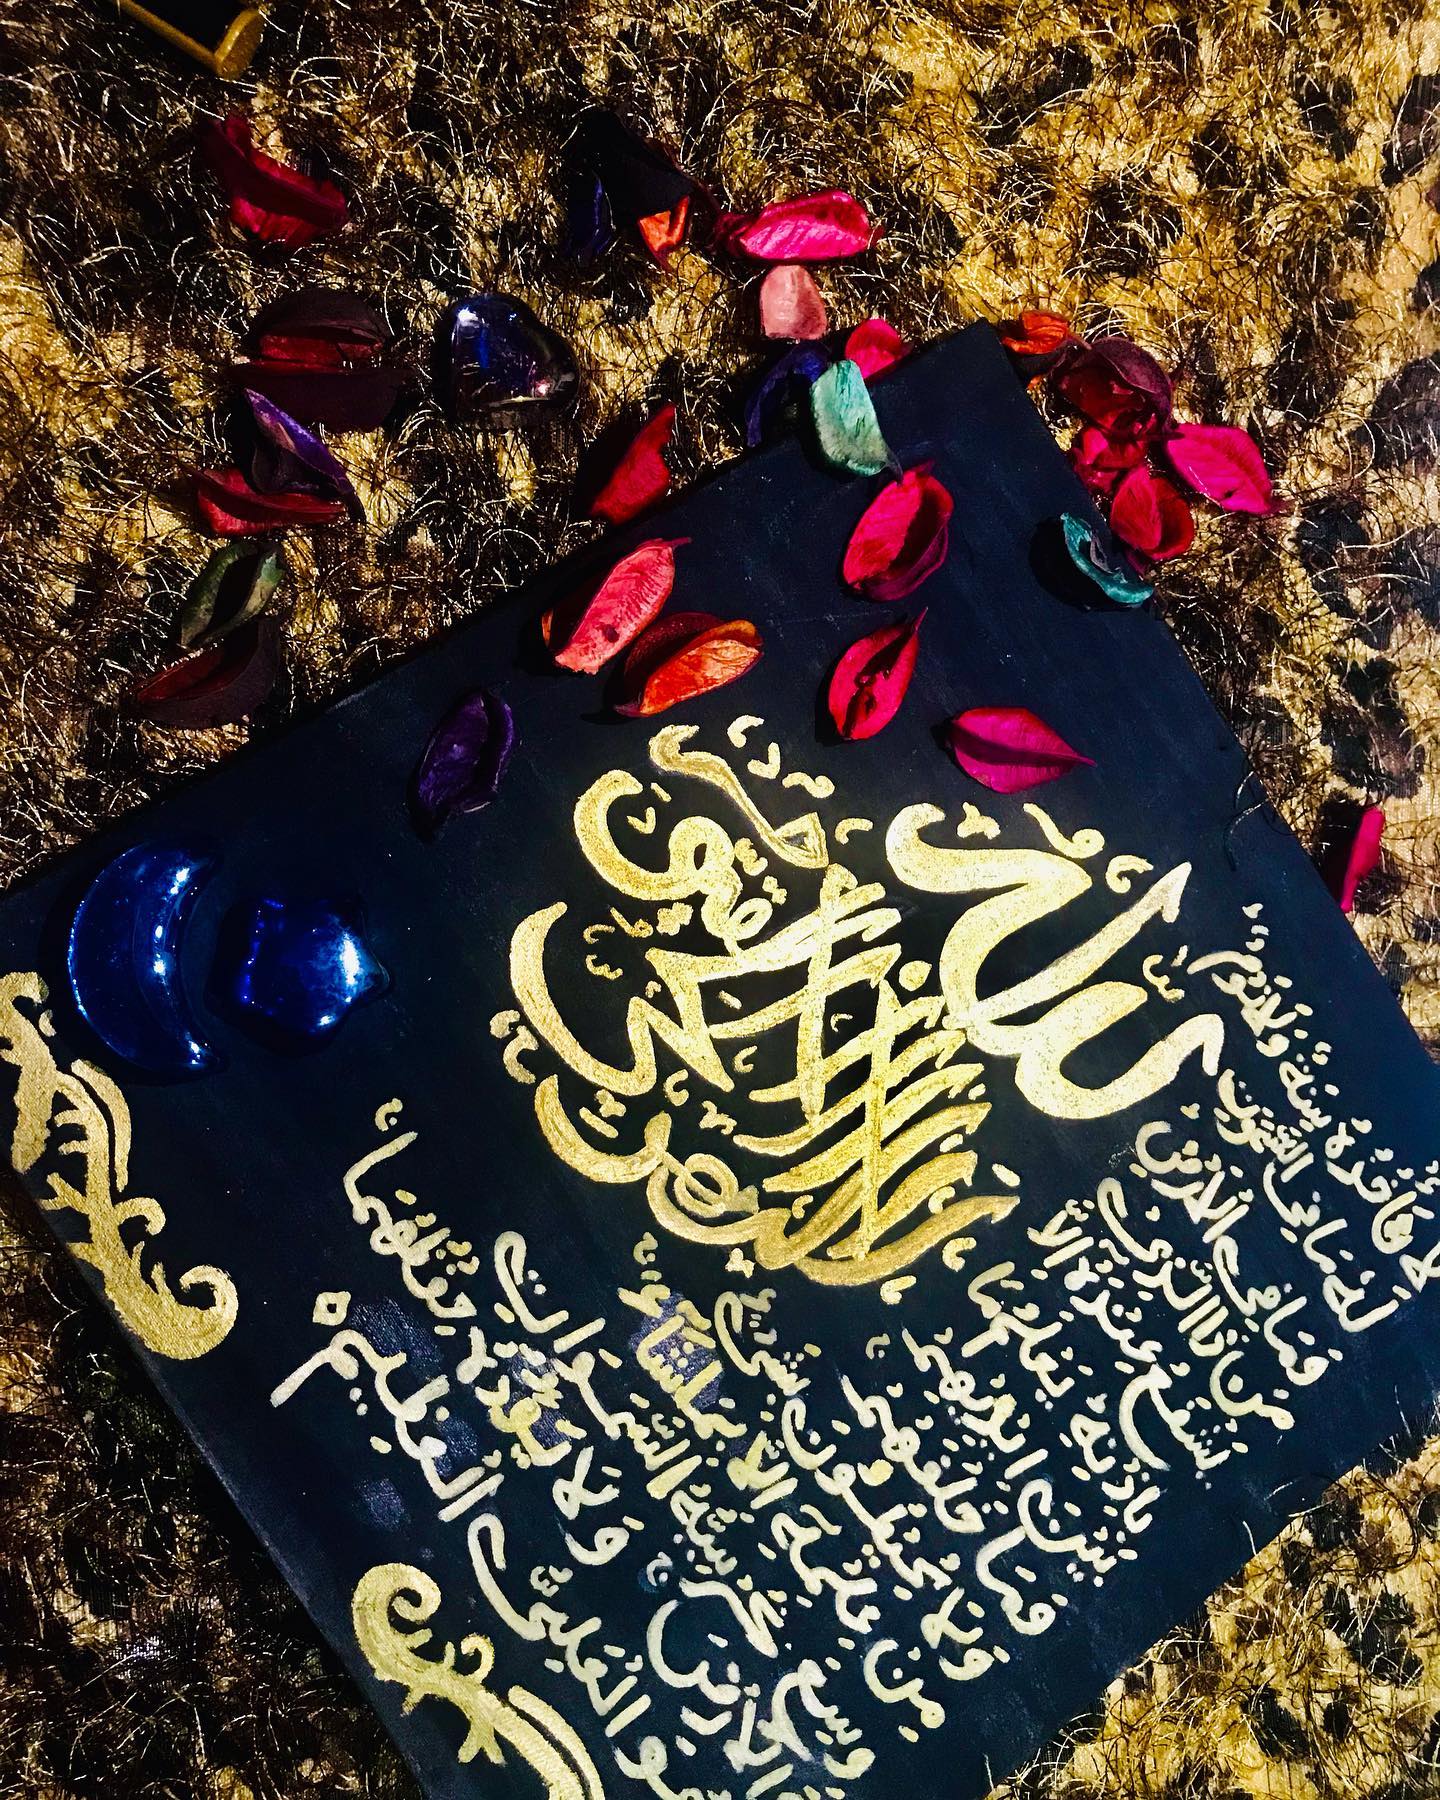 الله لا إله إلا هو الحي القيوم
لَا تَأْخُذُهُ سِنَةٌ وَلَا نَوْمٌ
لَهُ مَا فِي السَّمٰوٰتِ
وَمَا فِي الْأَرْضِ
مَنْ ذَا الَّذِي
يَشْفَعُ عِنْدَهُ إِلَّا
بِإِذْنِهِ يَعْلَمُ مَا
بَيْنَ أَيْدِيهِمْ
وَمَا خَلْفَهُمْ
وَلَا يُحِيطُونَ بِشَيْءٍ
مِنْ عِلْمِهِ إِلَّا بِمَا شَاءَ
وَسِعَ كُرْسِيُّهُ السَّمَوَاتِ
وَالْأَرْضَ وَلَا يَئُودُهُ حِفْظُهُمَا
وَهُوَ الْعَلِيُّ الْعَظِيمُ